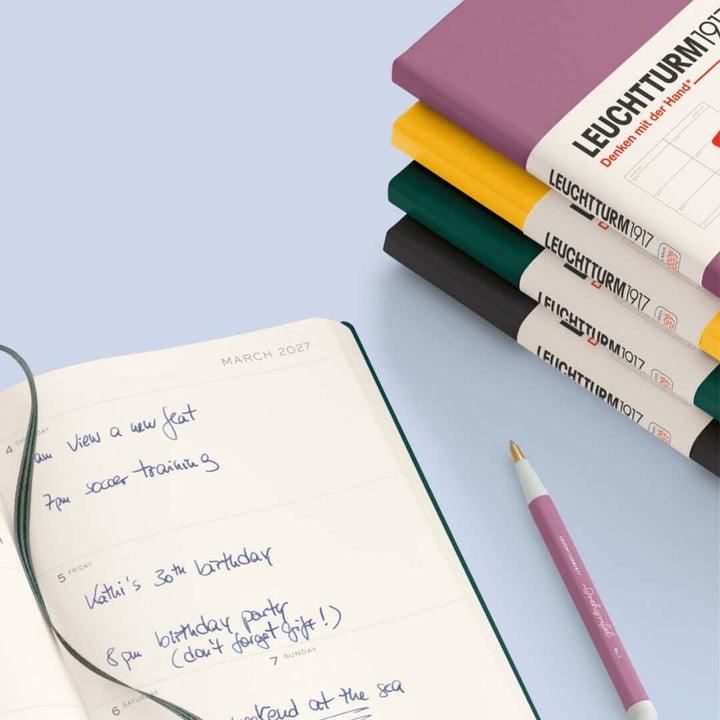 LEUCHTTURM1917
Denken mit der Hand*
LEUCHTTURM1917
LEUCHTTURM1917
LEUCHTTURM1917
LEUCHTTURM1917
MARCH 2027
4 THURSDAY
am view a new flat
7pm soccer training
5 FRIDAY
Kathi's 30th birthday
8pm birthday party
(don't forget gift!)
7 SUNDAY
6 SATURDAY
at the sea
LEUCHTTURM1917
Drehgriffel
Nr. 1